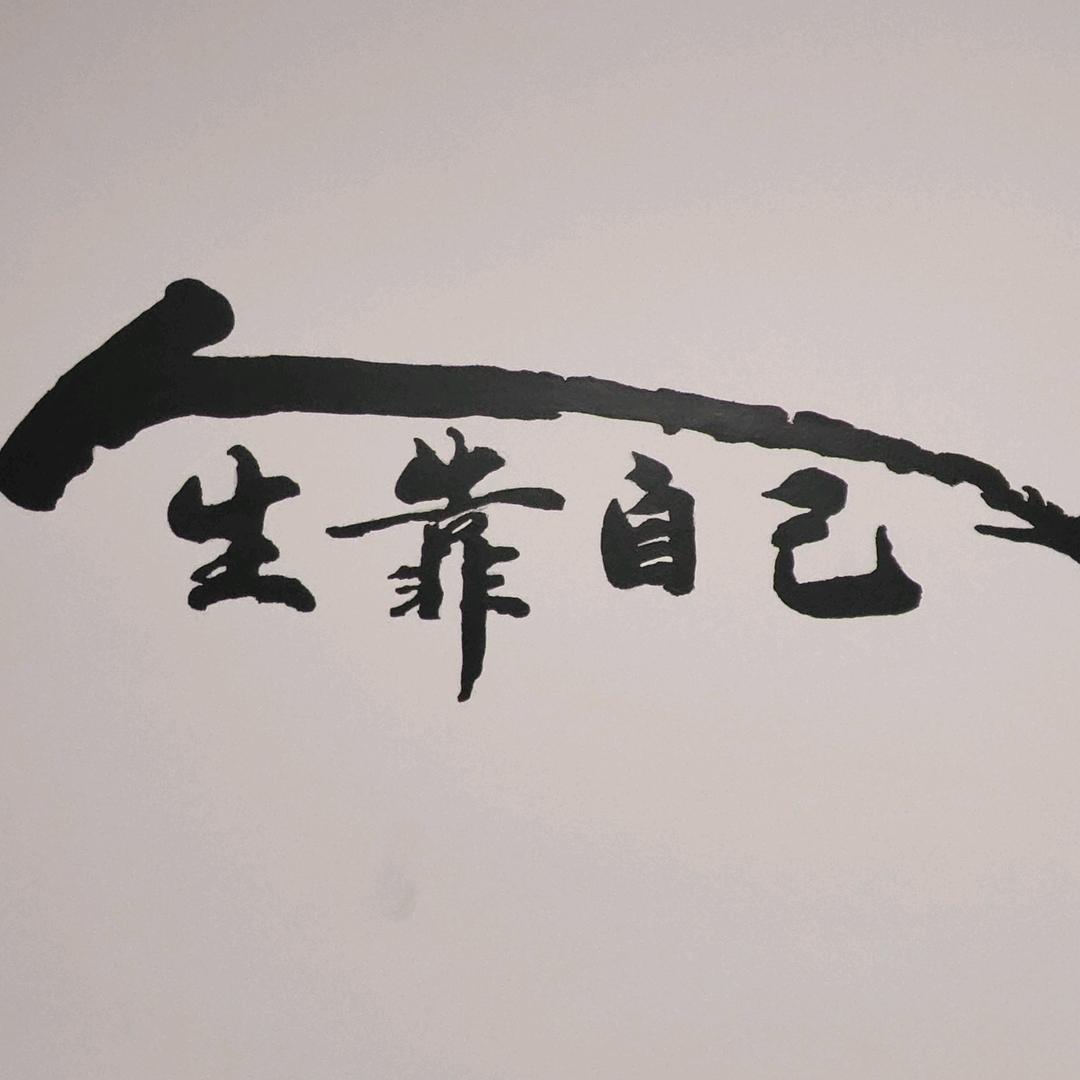 人生靠自己